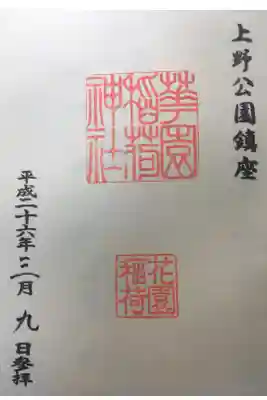 上野公園鎮座
華園
稲荷
神社
花園
稲荷
平成二十六年三月九日参拝